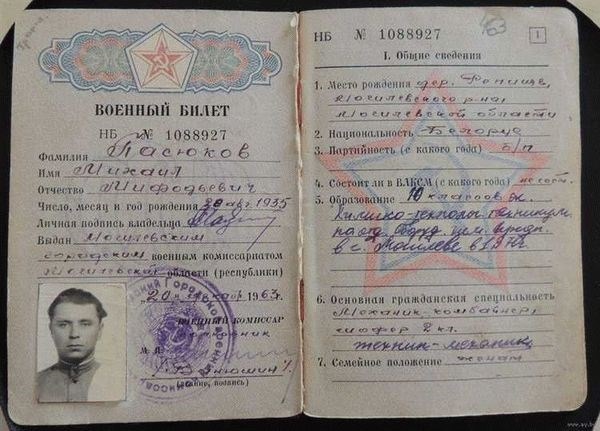 ВОЕННЫЙ БИЛЕТ
НБ № 1088927
Фамилия Пасюков
Имя Михаил
Отчество Мифодьевич
Число, месяц и год рождения 30 авг 1935
Личная подпись владельца
Выдан Могилевским
городским военным комиссариатом
Могилевской области (республики)
20 1963 г.
ВОЕННЫЙ КОМИССАР
М. П.
(звание, подпись)
163
НБ № 1088927
1
I. Общие сведения
1. Место рождения дер.
Могилевского р-на,
Могилевской области
2. Национальность Белорус
3. Партийность (с какого года) б/п
4. Состоит ли в ВЛКСМ (с какого года) не сост.
5. Образование 10 классов
Химико-технолог. техникум
в г. Могилеве в
6. Основная гражданская специальность
Механик-комбайнер,
шофер 2 кл.
техник-механик
7. Семейное положение женат